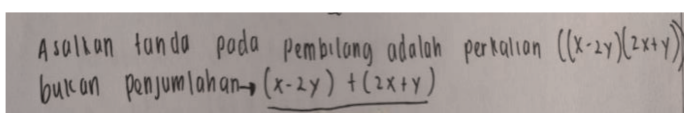 Asalkan tanda pada pembilang adalah perkalian ((x-2y)(2x+y))
bukan penjumlahan → (x-2y) + (2x+y)